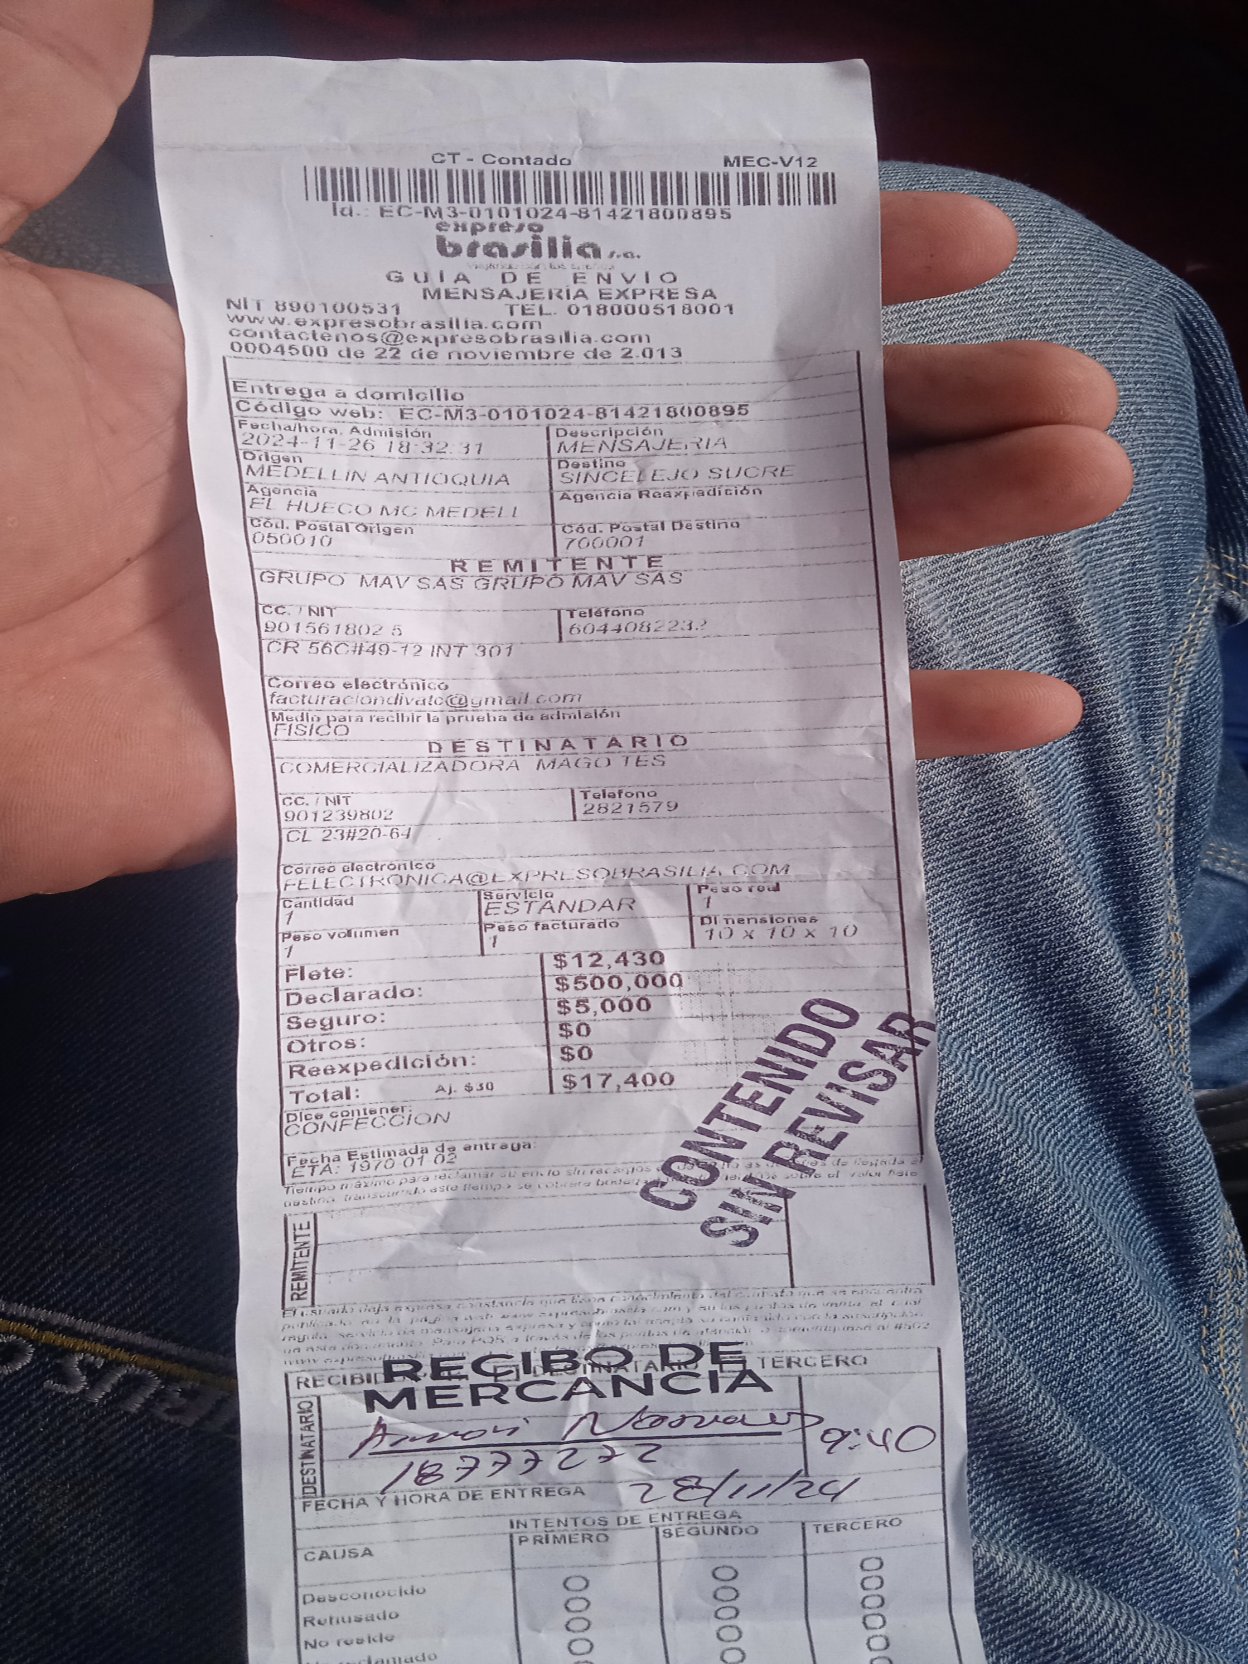 CT - Contado MEC-V12
Id.: EC-M3-0101024-81421800895
expreso
brasilia s.a.
GUIA DE ENVIO
MENSAJERÍA EXPRESA
NIT 890100531 TEL. 018000518001
www.expresobrasilia.com
contactenos@expresobrasilia.com
0004500 de 22 de noviembre de 2.013
Entrega a domicilio
Código web: EC-M3-0101024-81421800895
Fecha/hora. Admisión Descripción
2024-11-26 18:32:31 MENSAJERIA
Origen Destino
MEDELLIN ANTIOQUIA SINCELEJO SUCRE
Agencia Agencia Reexpedición
EL HUECO MC MEDELL
Cód. Postal Origen Cód. Postal Destino
050010 700001
REMITENTE
GRUPO MAV SAS GRUPO MAV SAS
CC. / NIT Teléfono
901561802 5 6044082232
CR 56C#49-12 INT 301
Correo electrónico
facturaciondivato@gmail.com
Medio para recibir la prueba de admisión
FISICO
DESTINATARIO
COMERCIALIZADORA MAGO TES
CC. / NIT Telefono
901239802 2821579
CL 23#20-64
Correo electrónico
FELECTRONICA@EXPRESOBRASILIA.COM
Cantidad Servicio Peso real
1 ESTANDAR 1
Peso volumen Peso facturado Dimensiones
1 1 10 x 10 x 10
Flete: $12,430
Declarado: $500,000
Seguro: $5,000
Otros: $0
Reexpedición: $0
Total: Aj. $30 $17,400
Dice contener:
CONFECCION
Fecha Estimada de entrega:
ETA: 1970-01-02
CONTENIDO
SIN REVISAR
Tiempo máximo para reclamar su envío sin recargos
REMITENTE
RECIBO DE
MERCANCIA
TERCERO
DESTINATARIO
9:40
18777272
FECHA Y HORA DE ENTREGA 28/11/24
INTENTOS DE ENTREGA
CAUSA PRIMERO SEGUNDO TERCERO
Desconocido
Rehusado
No reside